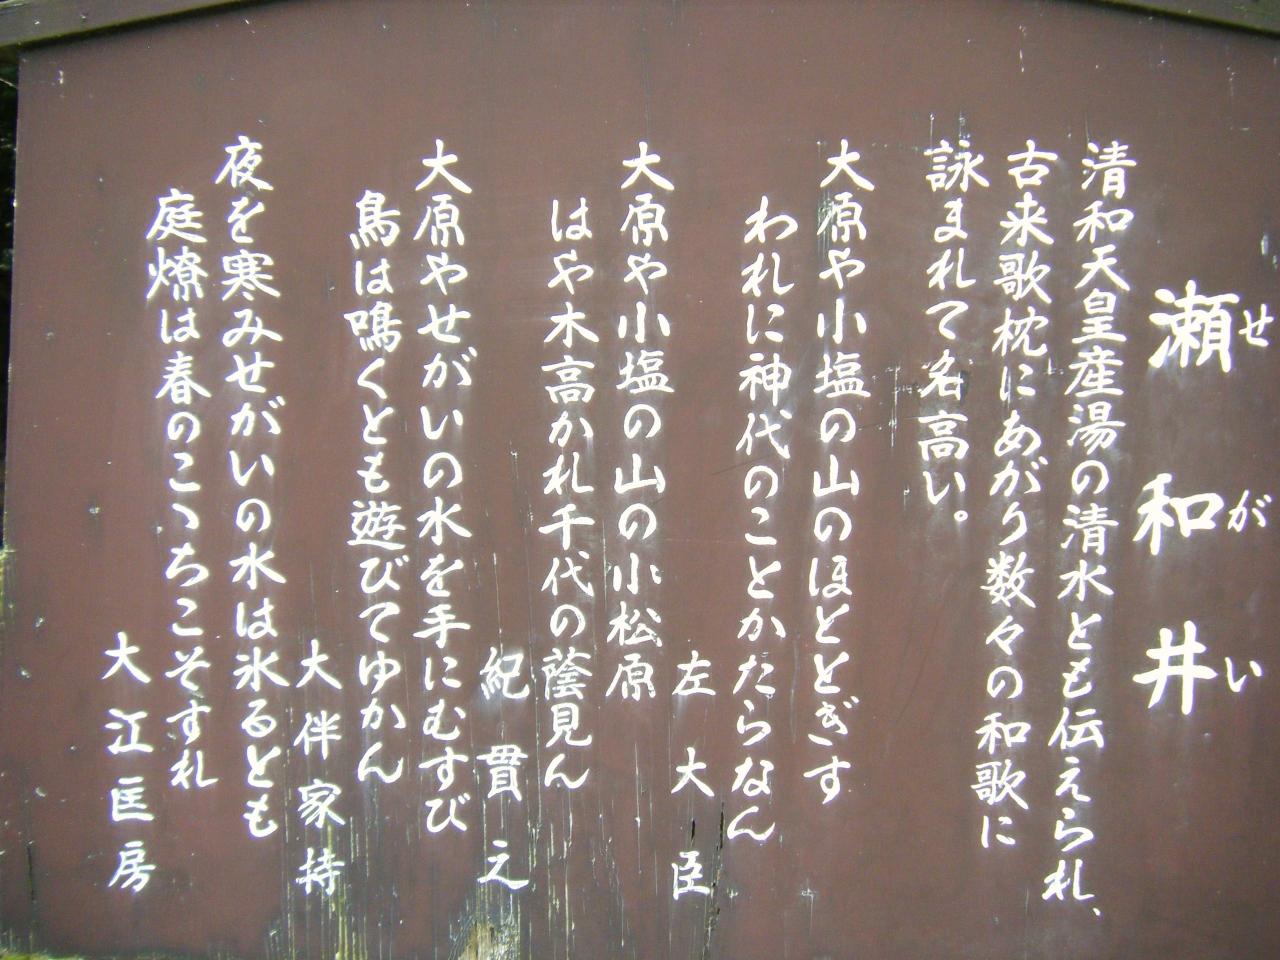 瀬和井
せがい
清和天皇産湯の清水とも伝えられ、
古来歌枕にあがり数々の和歌に
詠まれて名高い。
大原や小塩の山のほととぎす
われに神代のことかたらなん
左大臣
大原や小塩の山の小松原
はや木高かれ千代の蔭見ん
紀貫之
大原やせがいの水を手にむすび
鳥は鳴くとも遊びてゆかん
大伴家持
夜を寒みせがいの水は氷るとも
庭燎は春のこゝちこそすれ
大江匡房